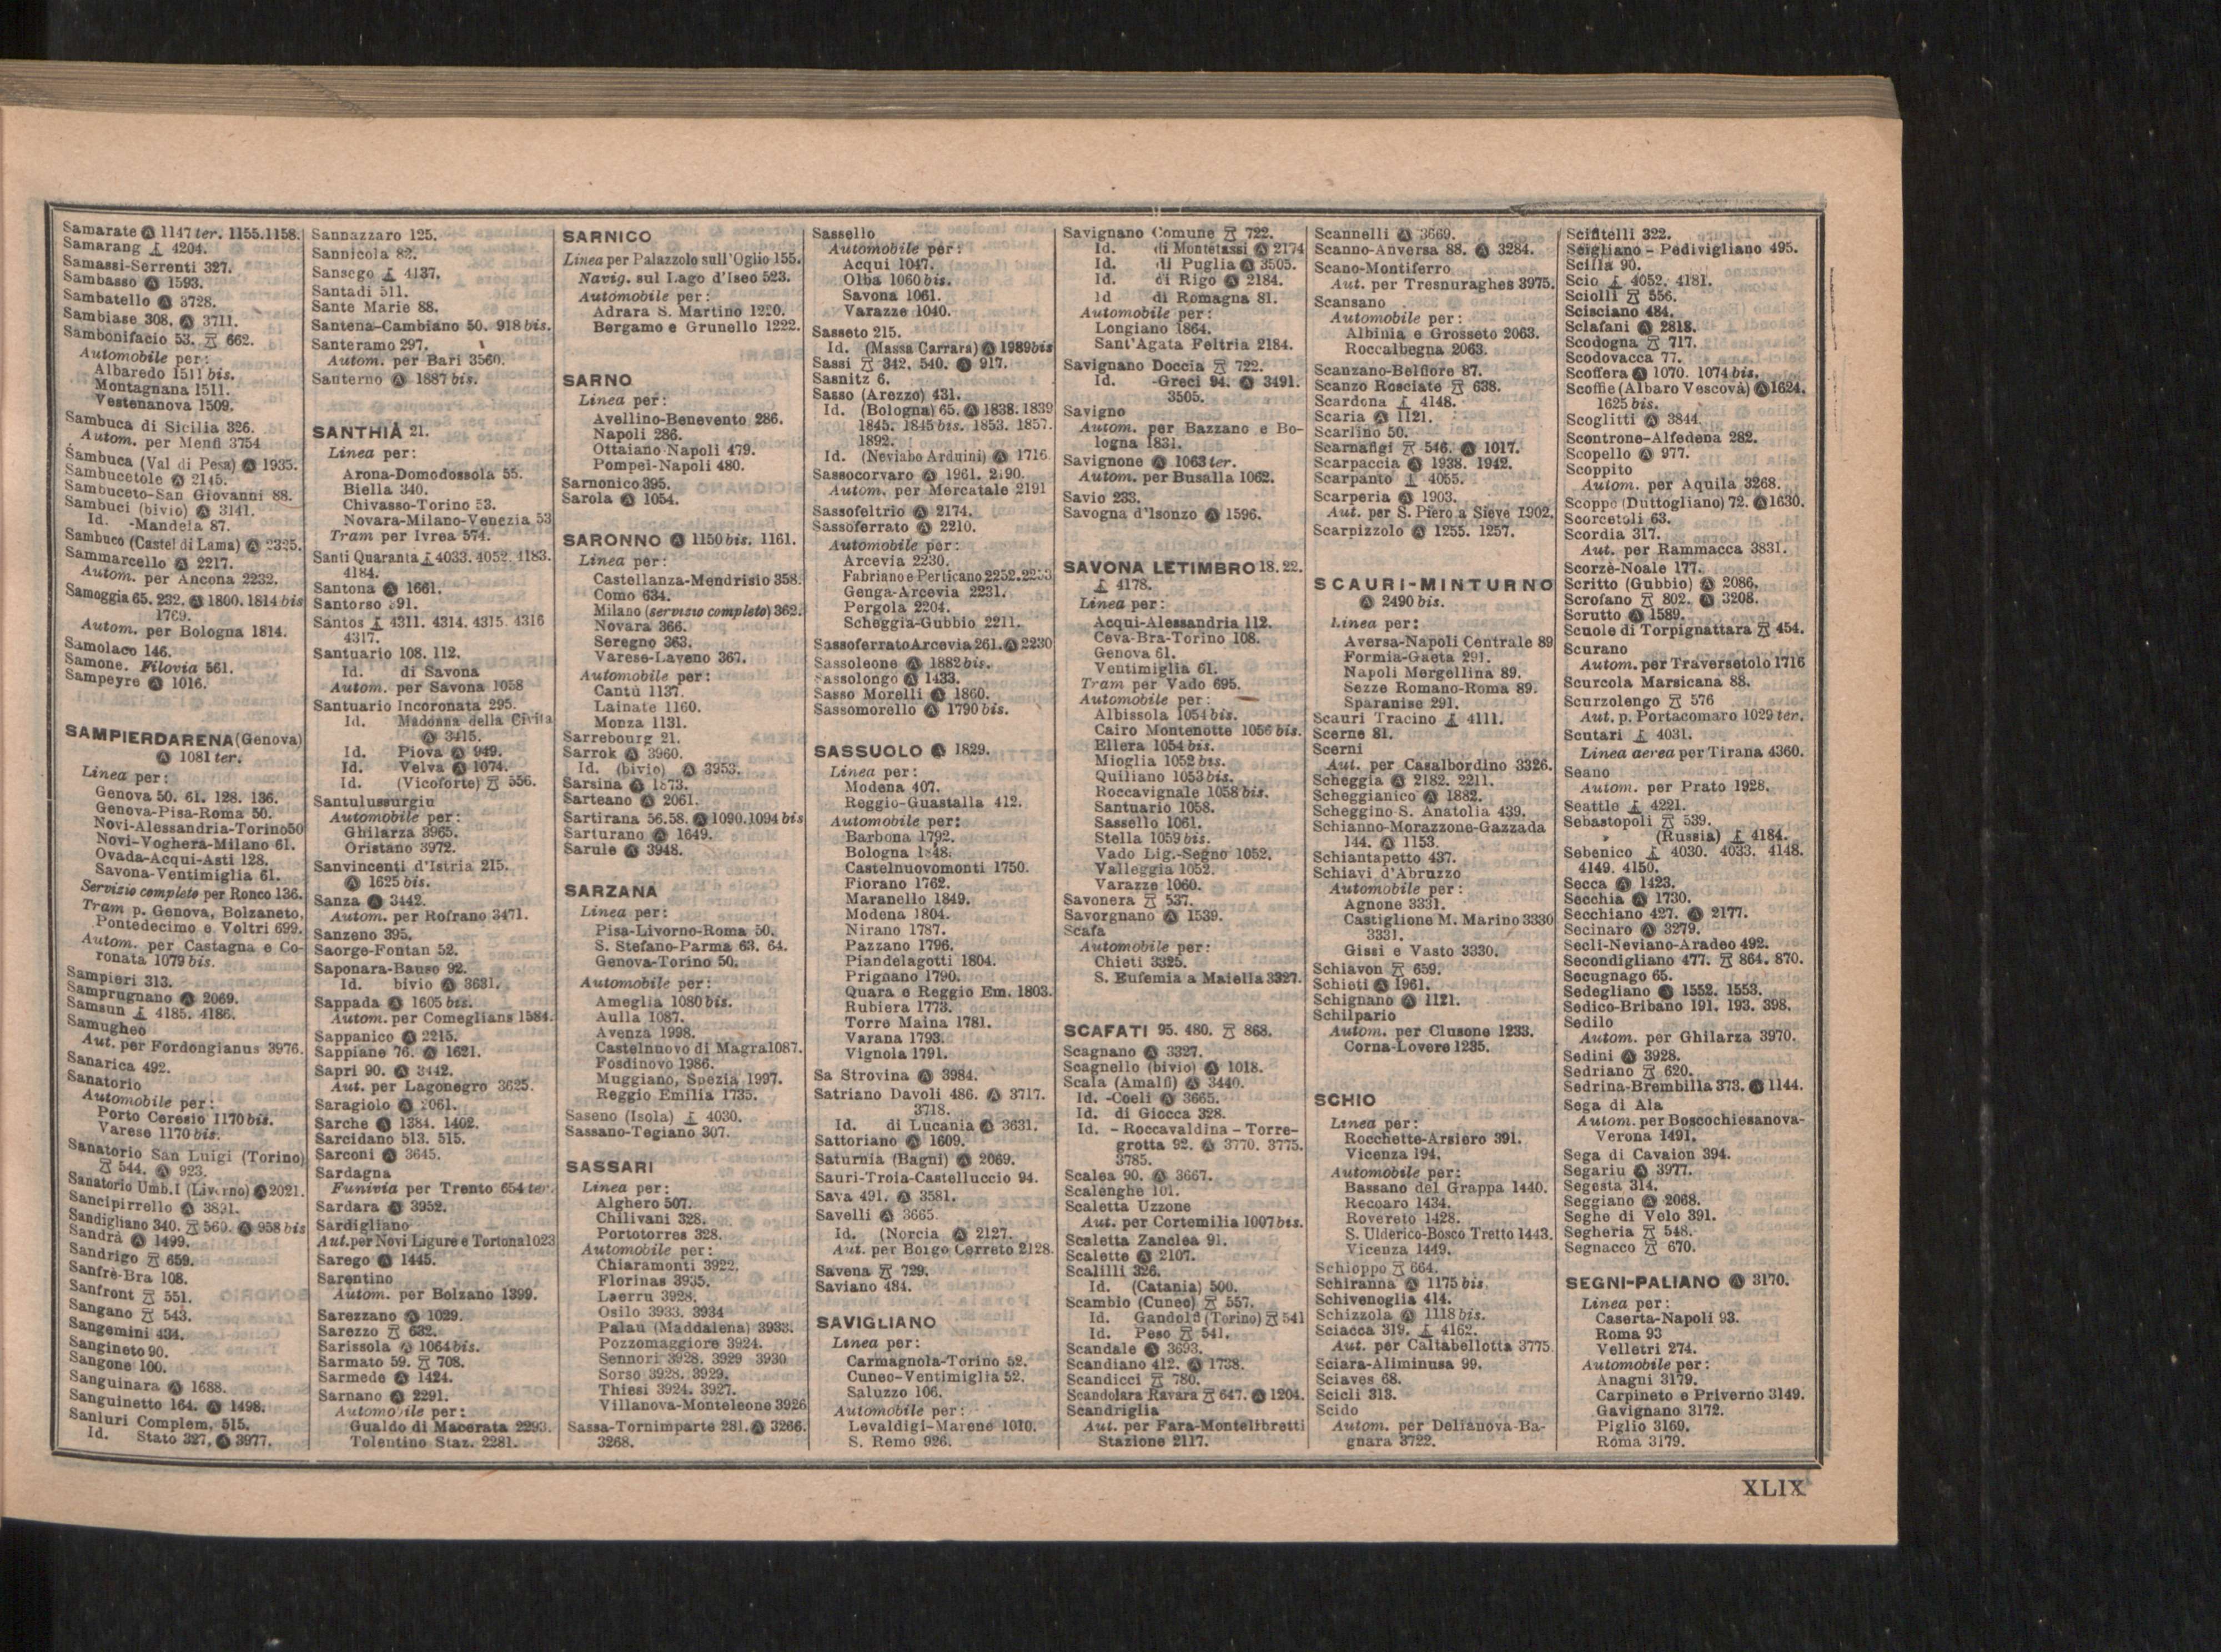 Samarate Ⓐ 1147 ter. 1155. 1158.
Samarang ⚓ 4204.
Samassi-Serrenti 327.
Sambasso Ⓐ 1593.
Sambatello Ⓐ 3728.
Sambiase 308. Ⓐ 3711.
Sambonifacio 53. 662.
Automobile per:
Albaredo 1511 bis.
Montagnana 1511.
Vestenanova 1509.
Sambuca di Sicilia 326.
Autom. per Menfi 3754
Sambuca (Val di Pesa) Ⓐ 1935.
Sambucetole Ⓐ 2145.
Sambuceto-San Giovanni 88.
Sambuci (bivio) Ⓐ 3141.
Id. -Mandela 87.
Sambuco (Castel di Lama) Ⓐ 2325.
Sammarcello Ⓐ 2217.
Autom. per Ancona 2232.
Samoggia 65. 232. Ⓐ 1800. 1814 bis
1769.
Autom. per Bologna 1814.
Samolaco 146.
Samone. Filovia 561.
Sampeyre Ⓐ 1016.
SAMPIERDARENA (Genova)
Ⓐ 1081 ter.
Linea per:
Genova 50. 61. 128. 136.
Genova-Pisa-Roma 50.
Novi-Alessandria-Torino 50
Novi-Voghera-Milano 61.
Ovada-Acqui-Asti 128.
Savona-Ventimiglia 61.
Servizio completo per Ronco 136.
Tram p. Genova, Bolzaneto,
Pontedecimo e Voltri 699.
Autom. per Castagna e Co-
ronata 1079 bis.
Sampieri 313.
Samprugnano Ⓐ 2069.
Samsun ⚓ 4185. 4186.
Samugheo
Aut. per Fordongianus 3976.
Sanarica 492.
Sanatorio
Automobile per:
Porto Ceresio 1170 bis.
Varese 1170 bis.
Sanatorio San Luigi (Torino)
544. Ⓐ 923.
Sanatorio Umb. I (Livorno) Ⓐ 2021.
Sancipirrello Ⓐ 3891.
Sandigliano 340. 560. Ⓐ 958 bis
Sandrà Ⓐ 1499.
Sandrigo 659.
Sanfrè-Bra 108.
Sanfront 551.
Sangano 543.
Sangemini 434.
Sangineto 90.
Sangone 100.
Sanguinara Ⓐ 1688.
Sanguinetto 164. Ⓐ 1498.
Sanluri Complem. 515.
Id. Stato 327. Ⓐ 3977.
Sannazzaro 125.
Sannicola 82.
Sansego ⚓ 4137.
Santadi 511.
Sante Marie 88.
Santena-Cambiano 50. 918 bis.
Santeramo 297.
Autom. per Bari 3560.
Santerno Ⓐ 1887 bis.
SANTHIÀ 21.
Linea per:
Arona-Domodossola 55.
Biella 340.
Chivasso-Torino 53.
Novara-Milano-Venezia 53
Tram per Ivrea 574.
Santi Quaranta ⚓ 4033. 4052. 4183.
4184.
Santona Ⓐ 1661.
Santorso 391.
Santos ⚓ 4311. 4314. 4315. 4316
4317.
Santuario 108. 112.
Id. di Savona
Autom. per Savona 1058
Santuario Incoronata 295.
Id. Madonna della Civita
Ⓐ 3415.
Id. Piova Ⓐ 949.
Id. Velva Ⓐ 1074.
Id. (Vicoforte) 556.
Santulussurgiu
Automobile per:
Ghilarza 3965.
Oristano 3972.
Sanvincenti d'Istria 215.
Ⓐ 1625 bis.
Sanza Ⓐ 3442.
Autom. per Rofrano 3471.
Sanzeno 395.
Saorge-Fontan 52.
Saponara-Bauso 92.
Id. bivio Ⓐ 3631.
Sappada Ⓐ 1605 bis.
Autom. per Comeglians 1584.
Sappanico Ⓐ 2215.
Sappiane 76. Ⓐ 1621.
Sapri 90. Ⓐ 3442.
Aut. per Lagonegro 3625.
Saragiolo Ⓐ 2061.
Sarche Ⓐ 1384. 1402.
Sarcidano 513. 515.
Sarconi Ⓐ 3645.
Sardagna
Funivia per Trento 654 ter.
Sardara Ⓐ 3952.
Sardigliano
Aut. per Novi Ligure e Tortona 1023
Sarego Ⓐ 1445.
Sarentino
Autom. per Bolzano 1399.
Sarezzano Ⓐ 1029.
Sarezzo 632.
Sarissola Ⓐ 1064 bis.
Sarmato 59. 708.
Sarmede Ⓐ 1424.
Sarnano Ⓐ 2291.
Automobile per:
Gualdo di Macerata 2293.
Tolentino Staz. 2281.
SARNICO
Linea per Palazzolo sull'Oglio 155.
Navig. sul Lago d'Iseo 523.
Automobile per:
Adrara S. Martino 1220.
Bergamo e Grunello 1222.
SARNO
Linea per:
Avellino-Benevento 286.
Napoli 286.
Ottaiano Napoli 479.
Pompei-Napoli 480.
Sarnonico 395.
Sarola Ⓐ 1054.
SARONNO Ⓐ 1150 bis. 1161.
Linea per:
Castellanza-Mendrisio 358.
Como 634.
Milano (servizio completo) 362.
Novara 366.
Seregno 363.
Varese-Laveno 367.
Automobile per:
Cantù 1137.
Lainate 1160.
Monza 1131.
Sarrebourg 21.
Sarrok Ⓐ 3960.
Id. (bivio) Ⓐ 3953.
Sarsina Ⓐ 1873.
Sarteano Ⓐ 2061.
Sartirana 56. 58. Ⓐ 1090. 1094 bis
Sarturano Ⓐ 1649.
Sarule Ⓐ 3948.
SARZANA
Linea per:
Pisa-Livorno-Roma 50.
S. Stefano-Parma 63. 64.
Genova-Torino 50.
Automobile per:
Ameglia 1080 bis.
Aulla 1087.
Avenza 1998.
Castelnuovo di Magra 1087.
Fosdinovo 1986.
Muggiano, Spezia 1997.
Reggio Emilia 1735.
Saseno (Isola) ⚓ 4030.
Sassano-Tegiano 307.
SASSARI
Linea per:
Alghero 507.
Chilivani 328.
Portotorres 328.
Automobile per:
Chiaramonti 3922.
Florinas 3935.
Laerru 3928.
Osilo 3933. 3934
Palau (Maddalena) 3933.
Pozzomaggiore 3924.
Sennori 3928. 3929 3930
Sorso 3928. 3929.
Thiesi 3924. 3927.
Villanova-Monteleone 3926
Sassa-Tornimparte 281. Ⓐ 3266.
3268.
Sassello
Automobile per:
Acqui 1047.
Olba 1060 bis.
Savona 1061.
Varazze 1040.
Sasseto 215.
Id. (Massa Carrara) Ⓐ 1989 bis
Sassi 342. 540. Ⓐ 917.
Sasnitz 6.
Sasso (Arezzo) 431.
Id. (Bologna) 65. Ⓐ 1838. 1839
1845. 1845 bis. 1853. 1857.
1892.
Id. (Neviano Arduini) Ⓐ 1716
Sassocorvaro Ⓐ 1961. 2190.
Autom. per Mercatale 2191
Sassofeltrio Ⓐ 2174.
Sassoferrato Ⓐ 2210.
Automobile per:
Arcevia 2230.
Fabriano e Perticano 2252. 2253
Genga-Arcevia 2231.
Pergola 2204.
Scheggia-Gubbio 2211.
Sassoferrato Arcevia 261. Ⓐ 2230
Sassoleone Ⓐ 1882 bis.
Sassolongo Ⓐ 1433.
Sasso Morelli Ⓐ 1860.
Sassomorello Ⓐ 1790 bis.
SASSUOLO Ⓐ 1829.
Linea per:
Modena 407.
Reggio-Guastalla 412.
Automobile per:
Barbona 1792.
Bologna 1848.
Castelnuovomonti 1750.
Fiorano 1762.
Maranello 1849.
Modena 1804.
Nirano 1787.
Pazzano 1796.
Piandelagotti 1804.
Prignano 1790.
Quara e Reggio Em. 1803.
Rubiera 1773.
Torre Maina 1781.
Varana 1793.
Vignola 1791.
Sa Strovina Ⓐ 3984.
Satriano Davoli 486. Ⓐ 3717.
3718.
Id. di Lucania Ⓐ 3631.
Sattoriano Ⓐ 1609.
Saturnia (Bagni) Ⓐ 2069.
Sauri-Troia-Castelluccio 94.
Sava 491. Ⓐ 3581.
Savelli Ⓐ 3665.
Id. (Norcia Ⓐ 2127.
Aut. per Borgo Cerreto 2128.
Savena 729.
Saviano 484.
SAVIGLIANO
Linea per:
Carmagnola-Torino 52.
Cuneo-Ventimiglia 52.
Saluzzo 106.
Automobile per:
Levaldigi-Marene 1010.
S. Remo 926.
Savignano Comune 722.
Id. di Montetassi Ⓐ 2174
Id. di Puglia Ⓐ 3505.
Id. di Rigo Ⓐ 2184.
Id di Romagna 81.
Automobile per:
Longiano 1864.
Sant'Agata Feltria 2184.
Savignano Doccia 722.
Id. -Greci 94. Ⓐ 3491.
3505.
Savigno
Autom. per Bazzano e Bo-
logna 1831.
Savignone Ⓐ 1063 ter.
Autom. per Busalla 1062.
Savio 233.
Savogna d'Isonzo Ⓐ 1596.
SAVONA LETIMBRO 18. 22.
⚓ 4178.
Linea per:
Acqui-Alessandria 112.
Ceva-Bra-Torino 108.
Genova 61.
Ventimiglia 61.
Tram per Vado 695.
Automobile per:
Albissola 1054 bis.
Cairo Montenotte 1056 bis.
Ellera 1054 bis.
Mioglia 1052 bis.
Quiliano 1053 bis.
Roccavignale 1058 bis.
Santuario 1058.
Sassello 1061.
Stella 1059 bis.
Vado Lig.-Segno 1052.
Valleggia 1052.
Varazze 1060.
Savonera 537.
Savorgnano Ⓐ 1539.
Scafa
Automobile per:
Chieti 3325.
S. Eufemia a Maiella 3327.
SCAFATI 95. 480. 868.
Scagnano Ⓐ 3327.
Scagnello (bivio) Ⓐ 1018.
Scala (Amalfi) Ⓐ 3440.
Id. -Coeli Ⓐ 3665.
Id. di Giocca 328.
Id. - Roccavaldina - Torre-
grotta 92. Ⓐ 3770. 3775.
3785.
Scalea 90. Ⓐ 3667.
Scalenghe 101.
Scaletta Uzzone
Aut. per Cortemilia 1007 bis.
Scaletta Zanclea 91.
Scalette Ⓐ 2107.
Scalilli 326.
Id. (Catania) 500.
Scambio (Cuneo) 557.
Id. Gandolfi (Torino) 541
Id. Peso 541.
Scandale Ⓐ 3693.
Scandiano 412. Ⓐ 1738.
Scandicci 780.
Scandolara Ravara 647. Ⓐ 1204.
Scandriglia
Aut. per Fara-Montelibretti
Stazione 2117.
Scannelli Ⓐ 3669.
Scanno-Anversa 88. Ⓐ 3284.
Scano-Montiferro
Aut. per Tresnuraghes 3975.
Scansano
Automobile per:
Albinia e Grosseto 2063.
Roccalbegna 2063.
Scanzano-Belfiore 87.
Scanzo Rosciate 638.
Scardona ⚓ 4148.
Scaria Ⓐ 1121.
Scarlino 50.
Scarnafigi 546. Ⓐ 1017.
Scarpaccia Ⓐ 1938. 1942.
Scarpanto ⚓ 4055.
Scarperia Ⓐ 1903.
Aut. per S. Piero a Sieve 1902.
Scarpizzolo Ⓐ 1255. 1257.
SCAURI-MINTURNO
Ⓐ 2490 bis.
Linea per:
Aversa-Napoli Centrale 89
Formia-Gaeta 291.
Napoli Mergellina 89.
Sezze Romano-Roma 89.
Sparanise 291.
Scauri Tracino ⚓ 4111.
Scerne 81.
Scerni
Aut. per Casalbordino 3326.
Scheggia Ⓐ 2182. 2211.
Scheggianico Ⓐ 1882.
Scheggino S. Anatolia 439.
Schianno-Morazzone-Gazzada
144. Ⓐ 1153.
Schiantapetto 437.
Schiavi d'Abruzzo
Automobile per:
Agnone 3331.
Castiglione M. Marino 3330
3331.
Gissi e Vasto 3330.
Schiavon 659.
Schieti Ⓐ 1961.
Schignano Ⓐ 1121.
Schilpario
Autom. per Clusone 1233.
Corna-Lovere 1235.
SCHIO
Linea per:
Rocchette-Arsiero 391.
Vicenza 194.
Automobile per:
Bassano del Grappa 1440.
Recoaro 1434.
Rovereto 1428.
S. Ulderico-Bosco Tretto 1443.
Vicenza 1449.
Schioppo 664.
Schiranna Ⓐ 1175 bis.
Schivenoglia 414.
Schizzola Ⓐ 1118 bis.
Sciacca 319. ⚓ 4162.
Aut. per Caltabellotta 3775.
Sciara-Aliminusa 99.
Sciaves 68.
Scicli 313.
Scido
Autom. per Delianova-Ba-
gnara 3722.
Scifitelli 322.
Scigliano - Pedivigliano 495.
Scilla 90.
Scio ⚓ 4052. 4181.
Sciolli 556.
Scisciano 484.
Sclafani Ⓐ 2818.
Scodogna 717.
Scodovacca 77.
Scoffera Ⓐ 1070. 1074 bis.
Scoffie (Albaro Vescovà) Ⓐ 1624.
1625 bis.
Scoglitti Ⓐ 3844.
Scontrone-Alfedena 282.
Scopello Ⓐ 977.
Scoppito
Autom. per Aquila 3268.
Scoppo (Duttogliano) 72. Ⓐ 1630.
Scorcetoli 63.
Scordia 317.
Aut. per Rammacca 3831.
Scorzè-Noale 177.
Scritto (Gubbio) Ⓐ 2086.
Scrofano 802. Ⓐ 3208.
Scrutto Ⓐ 1589.
Scuole di Torpignattara 454.
Scurano
Autom. per Traversetolo 1716
Scurcola Marsicana 88.
Scurzolengo 576
Aut. p. Portacomaro 1029 ter.
Scutari ⚓ 4031.
Linea aerea per Tirana 4360.
Seano
Autom. per Prato 1928.
Seattle ⚓ 4221.
Sebastopoli 539.
» (Russia) ⚓ 4184.
Sebenico ⚓ 4030. 4033. 4148.
4149. 4150.
Secca Ⓐ 1423.
Secchia Ⓐ 1730.
Secchiano 427. Ⓐ 2177.
Secinaro Ⓐ 3279.
Secli-Neviano-Aradeo 492.
Secondigliano 477. 864. 870.
Secugnago 65.
Sedegliano Ⓐ 1552. 1553.
Sedico-Bribano 191. 193. 398.
Sedilo
Autom. per Ghilarza 3970.
Sedini Ⓐ 3928.
Sedriano 620.
Sedrina-Brembilla 373. Ⓐ 1144.
Sega di Ala
Autom. per Boscochiesanova-
Verona 1491.
Sega di Cavaion 394.
Segariu Ⓐ 3977.
Segesta 314.
Seggiano Ⓐ 2068.
Seghe di Velo 391.
Segheria 548.
Segnacco 670.
SEGNI-PALIANO Ⓐ 3170.
Linea per:
Caserta-Napoli 93.
Roma 93
Velletri 274.
Automobile per:
Anagni 3179.
Carpineto e Priverno 3149.
Gavignano 3172.
Piglio 3169.
Roma 3179.
XLIX